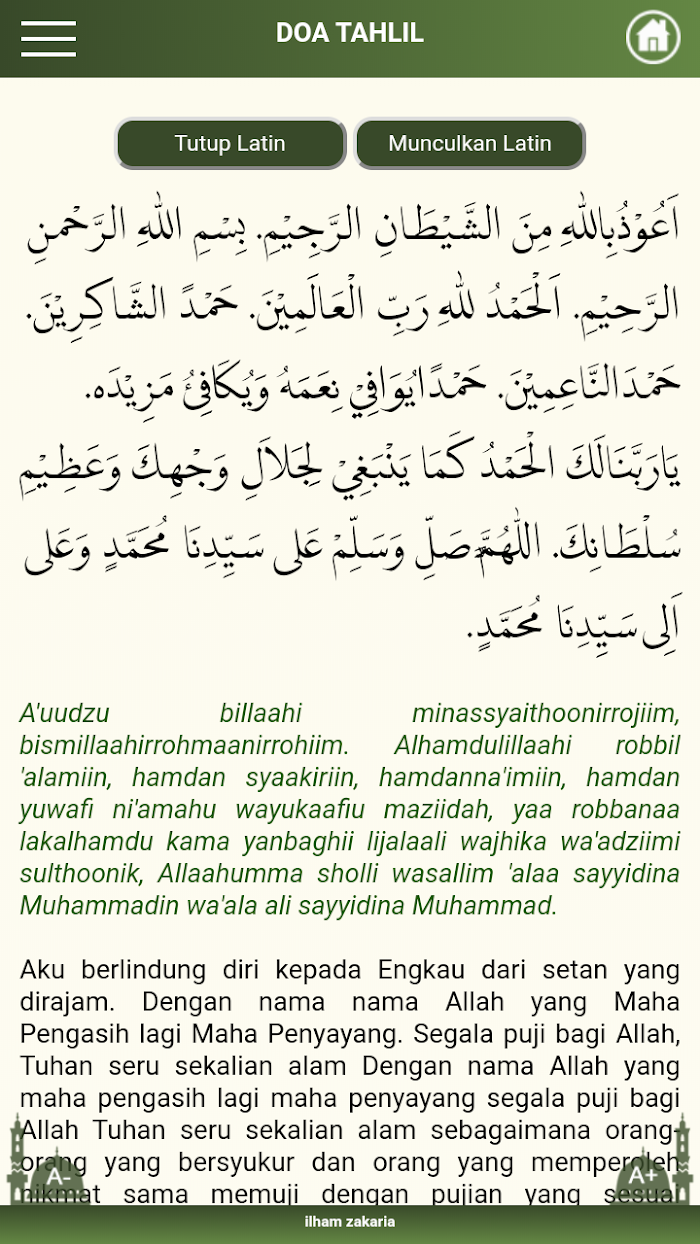 DOA TAHLIL
Tutup Latin
Munculkan Latin
اَعُوْذُبِاللهِ مِنَ الشَّيْطَانِ الرَّجِيْمِ. بِسْمِ اللهِ الرَّحْمنِ
الرَّحِيْمِ. اَلْحَمْدُ للهِ رَبِّ الْعَالَمِيْنَ. حَمْدً الشَّاكِرِيْنَ.
حَمْدَالنَّاعِمِيْنَ. حَمْدًايُوَافِيْ نِعَمَهُ وَيُكَافِئُ مَزِيْدَه.
يَارَبَّنَالَكَ الْحَمْدُ كَمَا يَنْبَغِيْ لِجَلاَلِ وَجْهِكَ وَعَظِيْمِ
سُلْطَانِكَ. اللهُمَّ صَلِّ وَسَلِّمْ عَلى سَيِّدِنَا مُحَمَّدٍ وَعَلى
اَلِى سَيِّدِنَا مُحَمَّدٍ.
A'uudzu billaahi minassyaithoonirrojiim,
bismillaahirrohmaanirrohiim. Alhamdulillaahi robbil
'alamiin, hamdan syaakiriin, hamdanna'imiin, hamdan
yuwafi ni'amahu wayukaafiu maziidah, yaa robbanaa
lakalhamdu kama yanbaghii lijalaali wajhika wa'adziimi
sulthoonik, Allaahumma sholli wasallim 'alaa sayyidina
Muhammadin wa'ala ali sayyidina Muhammad.
Aku berlindung diri kepada Engkau dari setan yang
dirajam. Dengan nama nama Allah yang Maha
Pengasih lagi Maha Penyayang. Segala puji bagi Allah,
Tuhan seru sekalian alam Dengan nama Allah yang
maha pengasih lagi maha penyayang segala puji bagi
Allah Tuhan seru sekalian alam sebagaimana orang-
orang yang bersyukur dan orang yang memperoleh
nikmat sama memuji dengan pujian yang sesuai
A-
A+
ilham zakaria